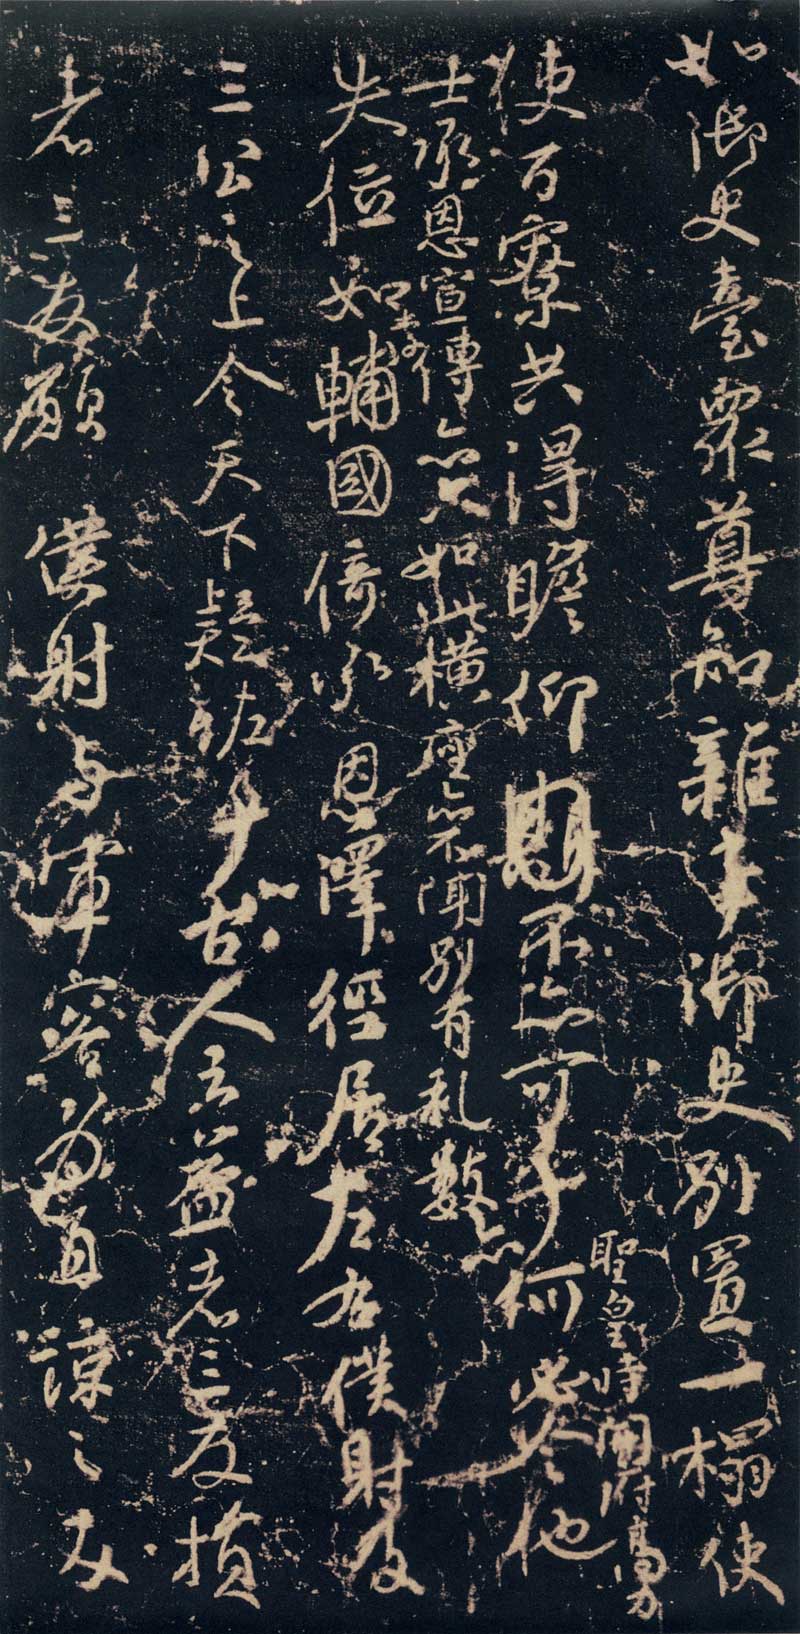 如御史臺衆尊知雜事御史別置一榻使
聖皇時開府高力
使百寮共得瞻仰不亦可乎何必令他
士承恩宣傳亦只如此橫座亦不聞別有礼數亦
失位如李輔國倚承恩澤徑居左右僕射及
三公之上令天下疑恠乎古人云益者三友損
者三友願僕射与軍容為直諒之友